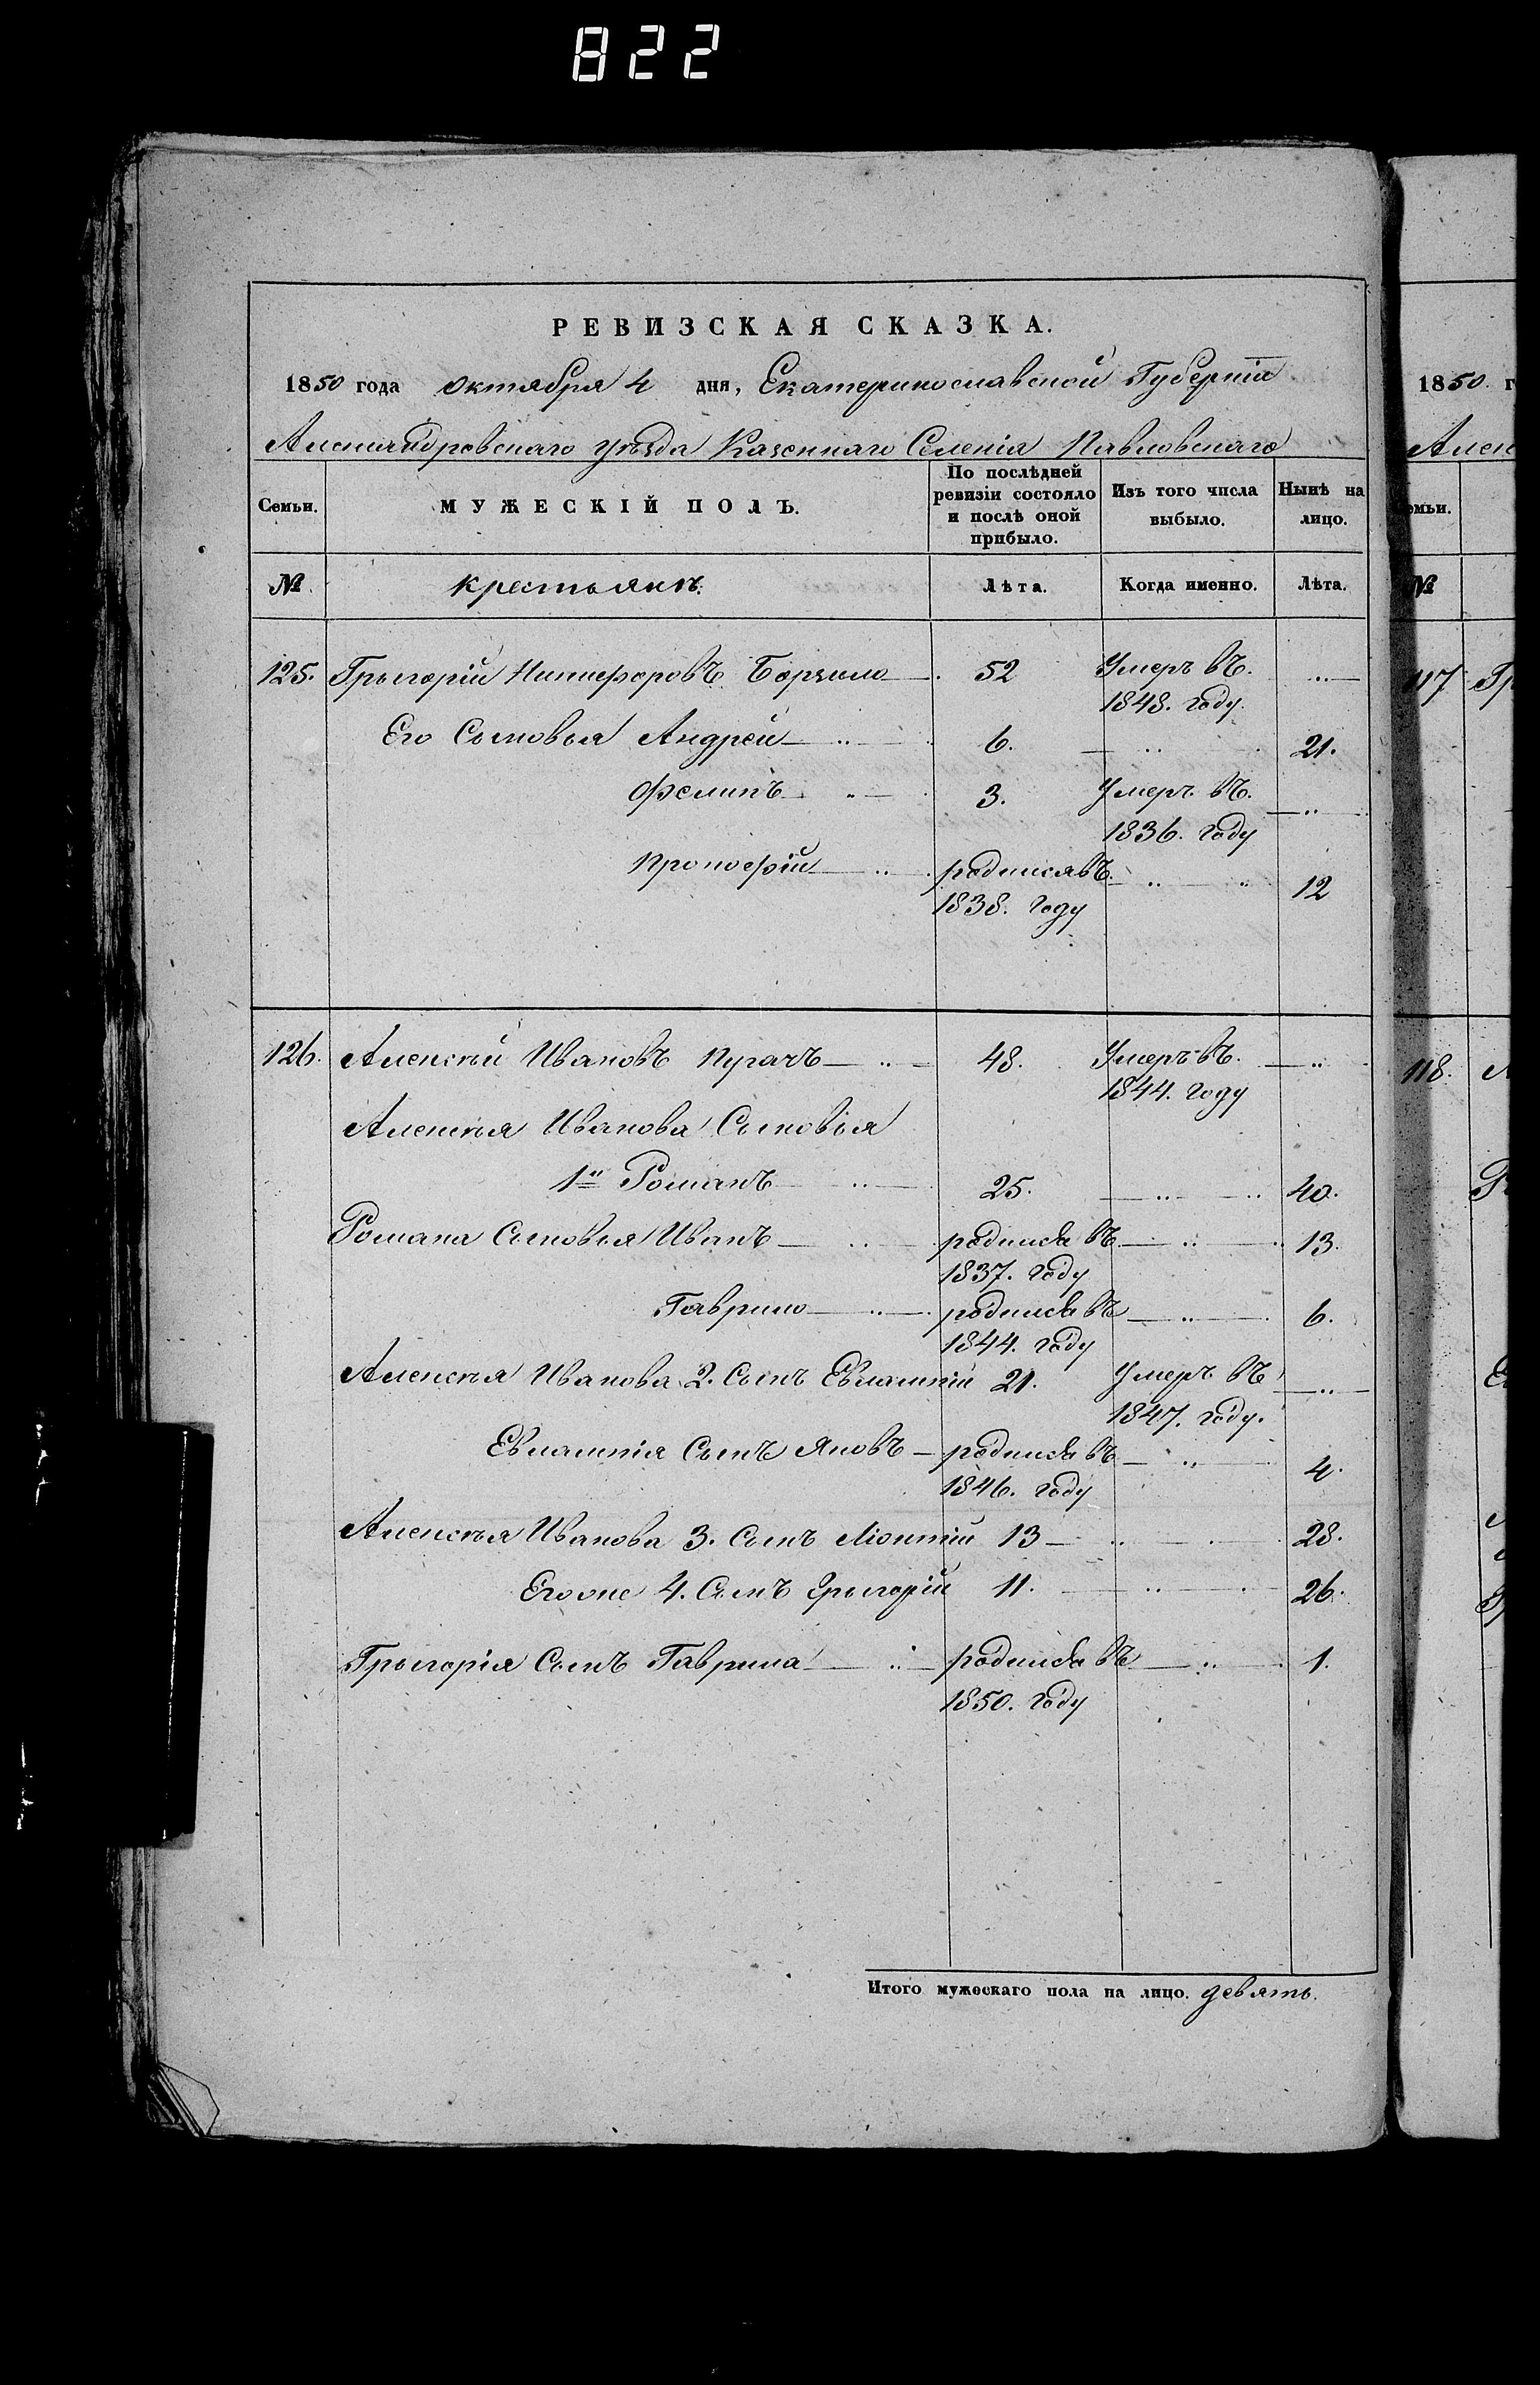 822
РЕВИЗСКАЯ СКАЗКА.
1850 года октября 4 дня, Екатеринославской Губерніи
Александровскаго уѣзда Казеннаго Селенія Павловскаго
Семьи. МУЖЕСКІЙ ПОЛЪ. По послѣдней ревизіи состояло и послѣ оной прибыло. Изъ того числа выбыло. Нынѣ на лицо.
№ крестьянъ. Лѣта. Когда именно. Лѣта.
125. Грыгорій Никифоровъ 52 Умеръ въ 1848. году
Его Сыновья Андрей 6. 21.
Филипъ 3. Умеръ въ 1836. году
Прокофій родился въ 1838. году 12
126. Алексѣй Ивановъ Пугачъ 48. Умеръ въ 1844. году
Алексѣя Иванова Сыновья
1й Романъ 25. 40.
Романа Сыновья Иванъ родился въ 1837. году 13.
Гаврило родился въ 1844. году 6.
Алексѣя Иванова 2. Сынъ Евлампій 21. Умеръ въ 1847. году.
Евлампія Сынъ Яковъ родился въ 1846. году 4.
Алексѣя Иванова 3. Сынъ 13 28.
Егоже 4. Сынъ Грыгорій 11. 26.
Грыгорія Сынъ Гаврила родился въ 1850. году 1.
Итого мужескаго пола на лицо. девять.
1850. г
Алек
емьи.
№
117 Гр
118.